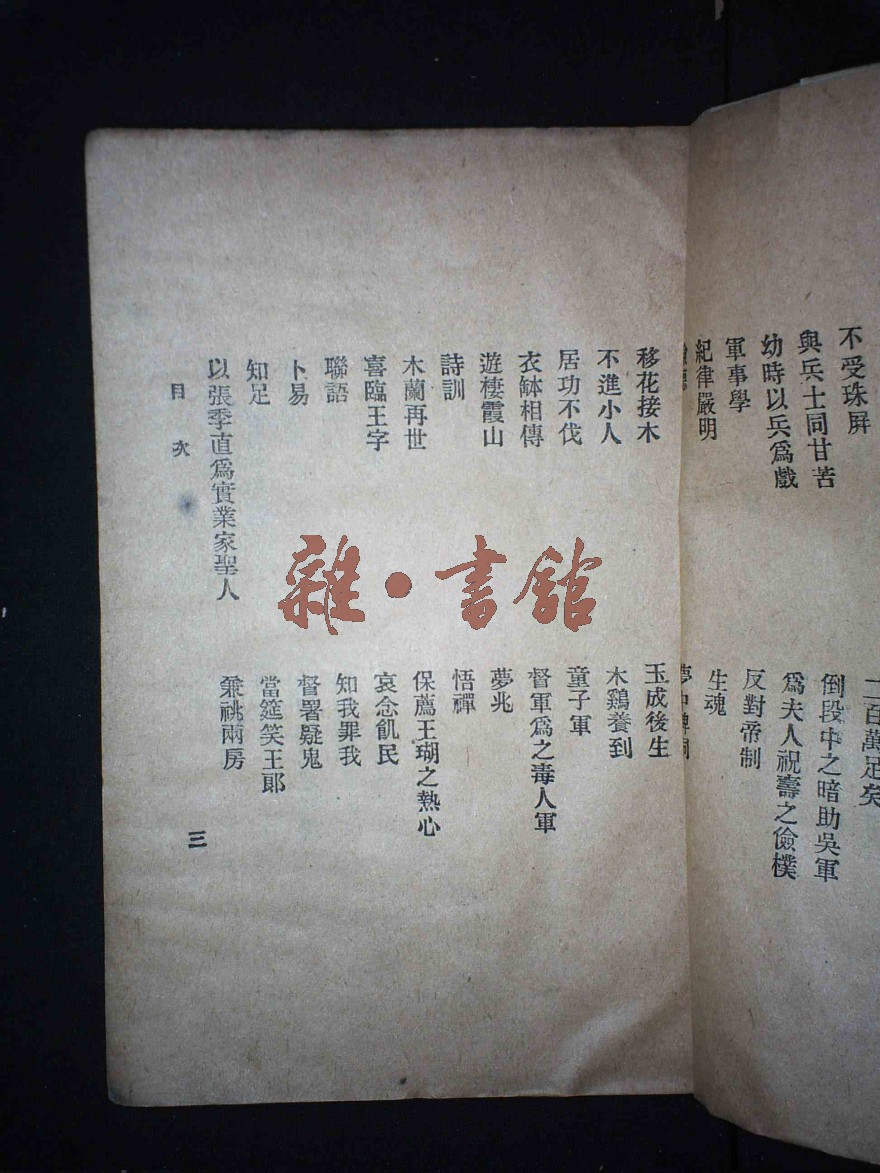 不受珠屏
與兵士同甘苦
幼時以兵爲戲
軍事學
紀律嚴明
一百萬足矣
倒段中之暗助吳軍
爲夫人祝壽之儉樸
反對帝制
生魂
移花接木
不進小人
居功不伐
衣缽相傳
遊棲霞山
詩訓
木蘭再世
喜臨王字
聯語
卜易
知足
以張季直爲實業家聖人
玉成後生
木鷄養到
童子軍
督軍爲之毒人軍
夢兆
悟禪
保薦王瑚之熱心
哀念飢民
知我罪我
督署疑鬼
當筵笑王郎
兼祧兩房
目次
三
雜·書館